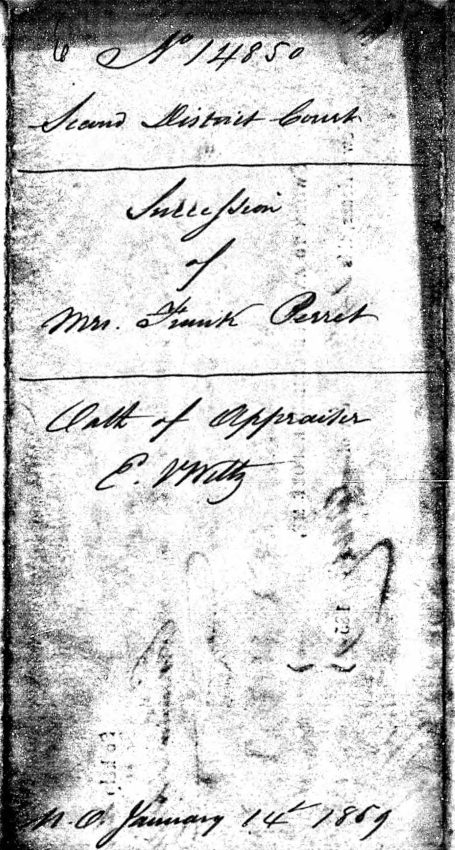 No 14850
Second District Court
Succession
of
Mrs. Frank Perret
Oath of Appraiser
E. Wiltz
N.O. January 14t 1869